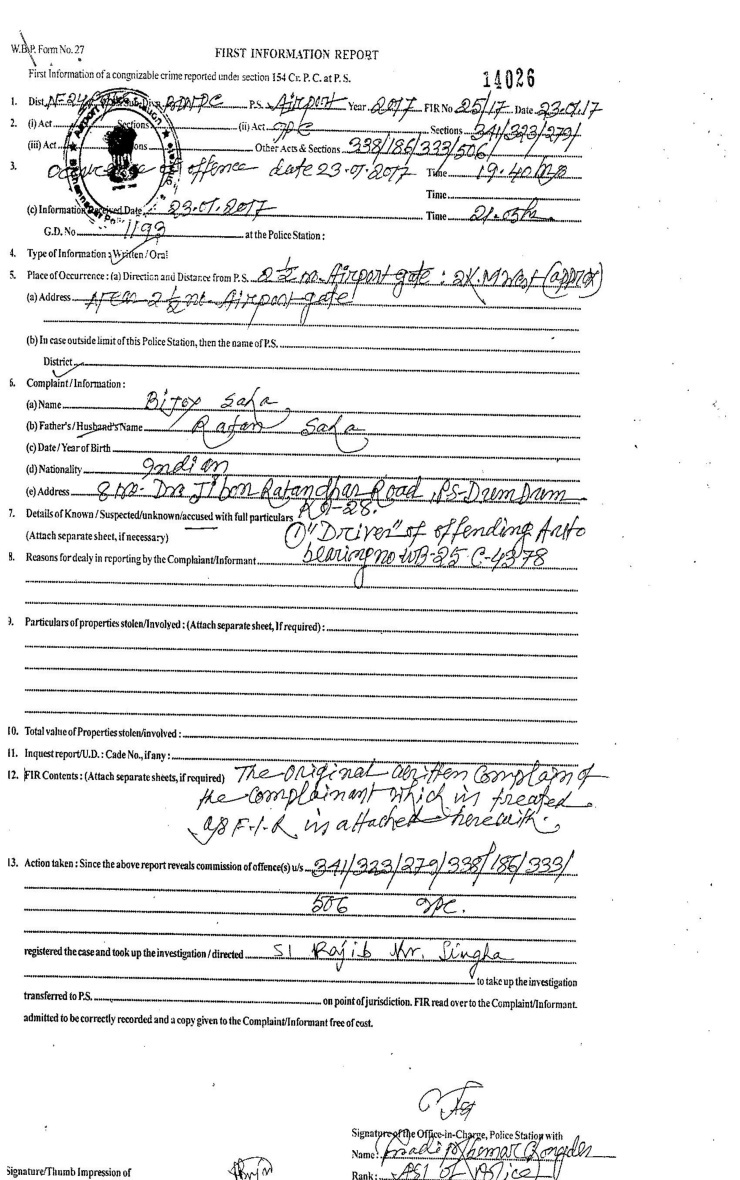 W.B.P. Form No. 27
FIRST INFORMATION REPORT
First Information of a congnizable crime reported under section 154 Cr. P. C. at P. S.
14026
1. Dist. Sub-Divn. P.S. Airport Year 2017 FIR No 25/17 Date
2. (i) Act Sections (ii) Act IPC Sections 341/323/279/
(iii) Act Sections Other Acts & Sections 338/186/333/506
3. of offence date 23.01.2017 Time 19.40 hrs
Time
(c) Information Received Date 23.01.2017 Time 21.05 hr
G.D. No 1193 at the Police Station :
4. Type of Information : Written / Oral
5. Place of Occurrence : (a) Direction and Distance from P.S. 2 1/2 no. Airport gate : 2K.M West (approx)
(a) Address 2 1/2 no. Airport gate
(b) In case outside limit of this Police Station, then the name of P.S.
District
6. Complaint / Information :
(a) Name Bijoy Saha
(b) Father's / Husband's Name Ratan Saha
(c) Date / Year of Birth
(d) Nationality Indian
(e) Address 8 no. Dr. Jibon Ratan dhar Road, PS-Dum Dum
-28.
7. Details of Known / Suspected/unknown/accused with full particulars
(Attach separate sheet, if necessary) ① "Driver" of offending Auto
8. Reasons for dealy in reporting by the Complaiant/Informant bearing no WB-25 C-4378
9. Particulars of properties stolen/Involved : (Attach separate sheet, If required) :
10. Total value of Properties stolen/involved :
11. Inquest report/U.D. : Cade No., if any :
12. FIR Contents : (Attach separate sheets, if required) The original written complain of
the complainant which is treated
as F.I.R is attached herewith.
13. Action taken : Since the above report reveals commission of offence(s) u/s 341/323/279/338/186/333/
506 IPC.
registered the case and took up the investigation / directed SI Rajib Kr. Singha
to take up the investigation
transferred to P.S. on point of jurisdiction. FIR read over to the Complaint/Informant.
admitted to be correctly recorded and a copy given to the Complaint/Informant free of cost.
Signature of the Office-in-Charge, Police Station with
Name :
Signature/Thumb Impression of
Rank : ASI of Police